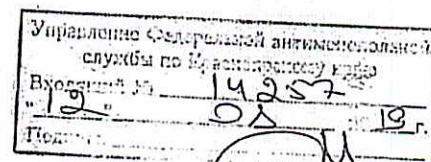 Управление Федеральной антимонопольной
службы по Красноярскому краю
Входящий № 14257
"12" 08 19 г.
Подпись